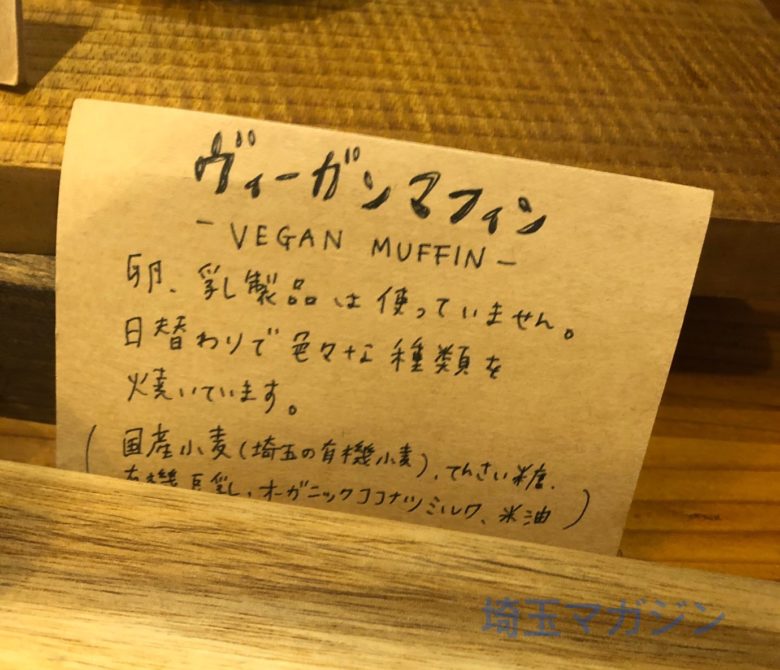 ヴィーガンマフィン
- VEGAN MUFFIN -
卵、乳製品は使っていません。
日替わりで色々な種類を
焼いています。
(国産小麦(埼玉の有機小麦)、てんさい糖、
有機豆乳、オーガニックココナツミルク、米油)
埼玉マガジン